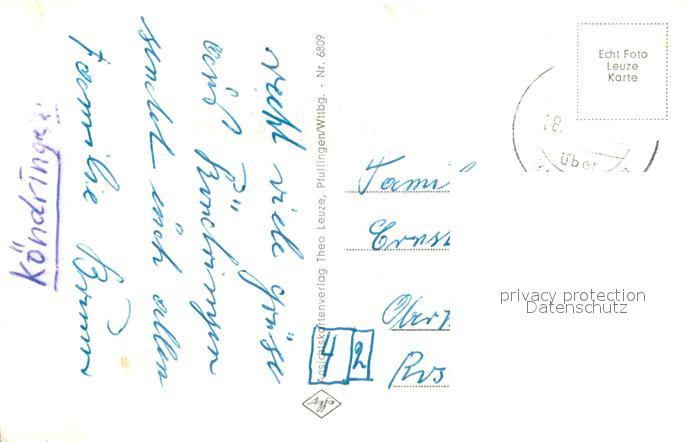 Köndringen
recht viele Grüße
aus Köndringen
sendet euch allen
Familie
Ansichtskartenverlag Theo Leuze, Pfullingen/Wttbg. - Nr. 6809
Echt Foto
Leuze
Karte
18.
über
Famil
Ernst
Ober
42
Agfa
privacy protection
Datenschutz